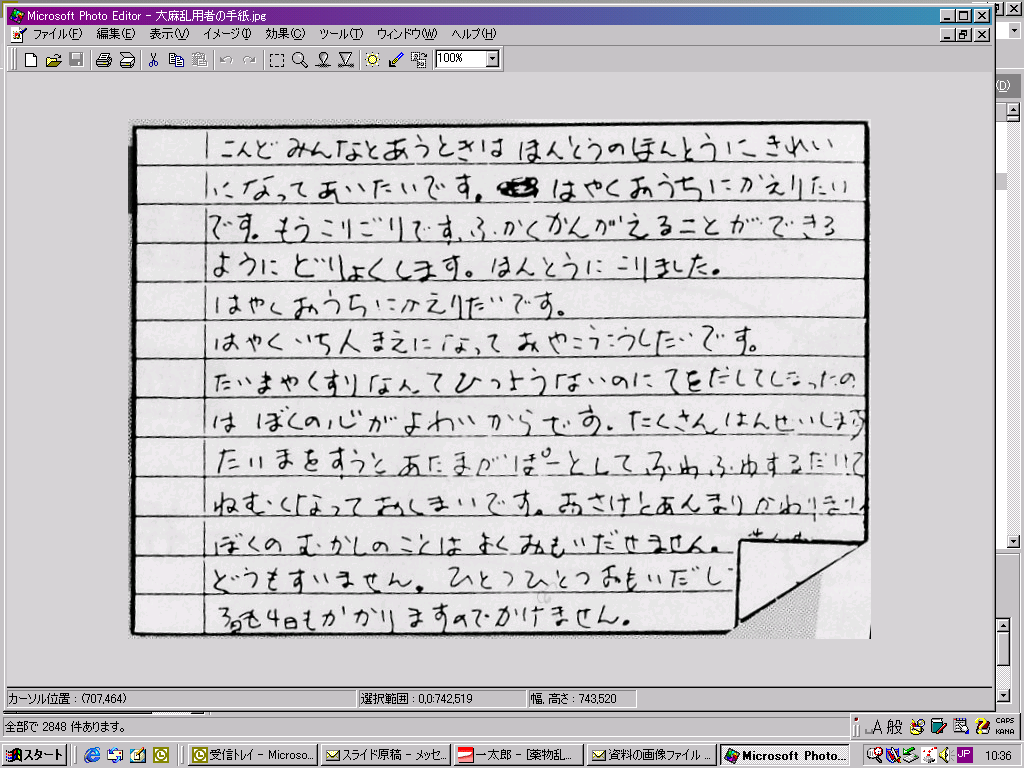 Microsoft Photo Editor - 大麻乱用者の手紙.jpg
ファイル(F) 編集(E) 表示(V) イメージ(I) 効果(C) ツール(T) ウィンドウ(W) ヘルプ(H)
100%
(D)
こんど みんなとあうときは ほんとうのほんとうに きれい
になって あいたいです。 はやくおうちにかえりたい
です。もうこりごりです、ふかくかんがえることが できる
ように どりょくします。ほんとうに こりました。
はやくおうちにかえりたいです。
はやくいち人まえになって おやこうこうしたいです。
たいまやくすりなんてひつようないのにてをだしてしまったの
は ぼくの心がよわいからです。たくさんはんせいします
たいまをすうと あたまがぱーとして ふわふわするだけで
ねむくなっておしまいです。おさけとあんまりかわりません
ぼくの むかしのことは よくおもいだせません。
どうもすいません。ひとつひとつおもいだし
3日も4日もかかりますのでかけません。
カーソル位置 : (707,464) 選択範囲 : 0,0:742,519 幅, 高さ : 743,520
全部で 2848 件あります。
A 般 CAPS KANA
スタート 受信トレイ - Microso... スライド原稿 - メッセ... 一太郎 - [薬物乱... 資料の画像ファイル ... Microsoft Photo... JP 10:36